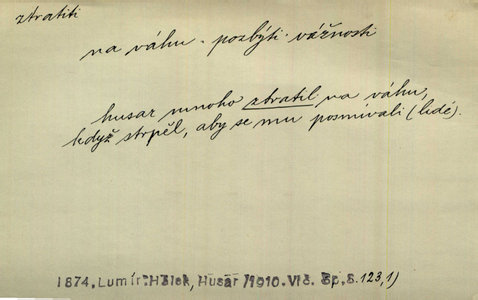 ztratiti
na váhu - pozbýti vážnosti
husar mnoho ztratil na váhu,
když strpěl, aby se mu posmívali (lidé).
1874, Lumír: Hálek, Husar /1910. Vlč. Sp. S. 123, 1)